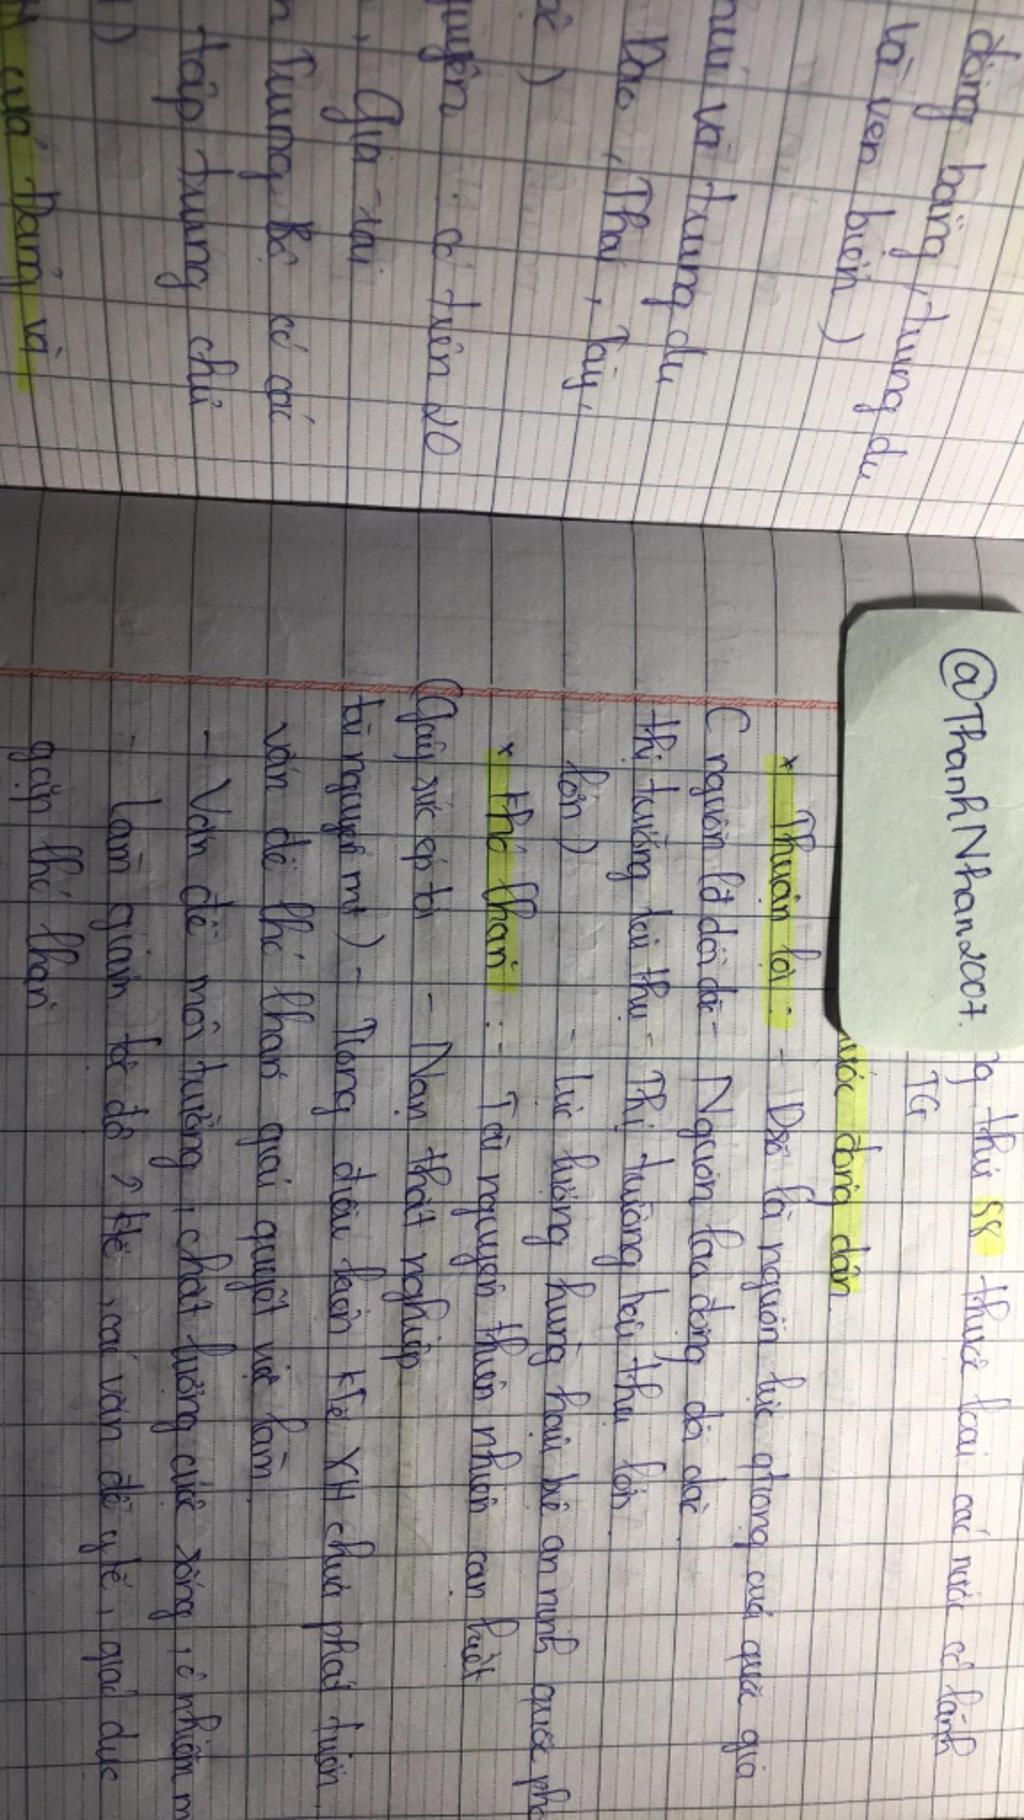 đồng bằng, trung du
và ven biển)
núi và trung du
Dao, Thái, Tày,
guyên : có trên 20
, Gia-rai
n Trung Bộ có các
tập trung chủ
của Đảng và
@ThanhNhan2007.
thứ 58 thuộc loại các nước có lãnh
TG
nước đông dân
* Thuận lợi : - Dsố là nguồn lực qtrọng của quốc gia
( nguồn lđ dồi dào - Nguồn lao động dồi dào
thị trường tiêu thụ - Thị trường tiêu thụ lớn
lớn) - Lực lượng hùng hậu bvệ an ninh quốc ph
* khó khăn : - Tài nguyên thiên nhiên cạn kiệt
(Gây sức ép tới - Nạn thất nghiệp
tài nguyên mt) - Trong điều kiện KTế XH chưa phát triển,
vấn đề khó khăn giải quyết việc làm
- Vấn đề môi trường, chất lượng cuộc sống, ô nhiễm m
- Làm giảm tốc độ ? Ktế, các vấn đề y tế, giáo dục
gặp khó khăn